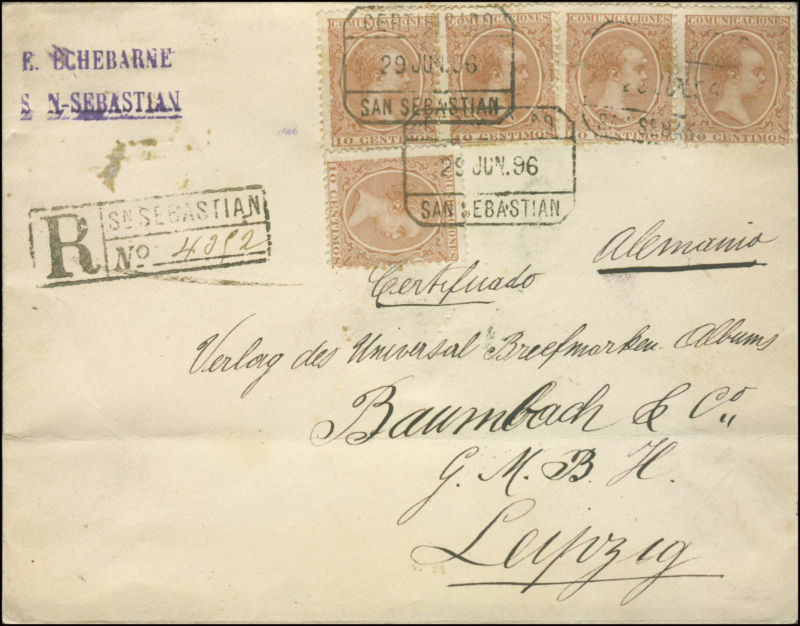 E. ECHEBARNE
S N-SEBASTIAN
COMUNICACIONES COMUNICACIONES COMUNICACIONES COMUNICACIONES
CERTIFICADO
29 JUN. 96
SAN SEBASTIAN
10 CENTIMOS 10 CENTIMOS 10 CENTIMOS 10 CENTIMOS
29 JUN. 96
SAN SEBASTIAN
10 CENTIMOS
R
Sn SEBASTIAN
No 4092
Alemania
Certificado
Verlag des Universal Breefmarken Albums
Baumbach & Co„
G. M. B. H.
Leipzig